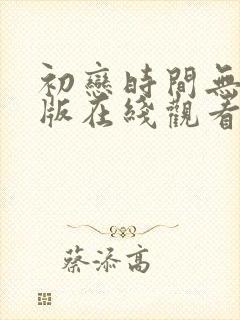 初戀時間無
版在綫觀看
蔡添高